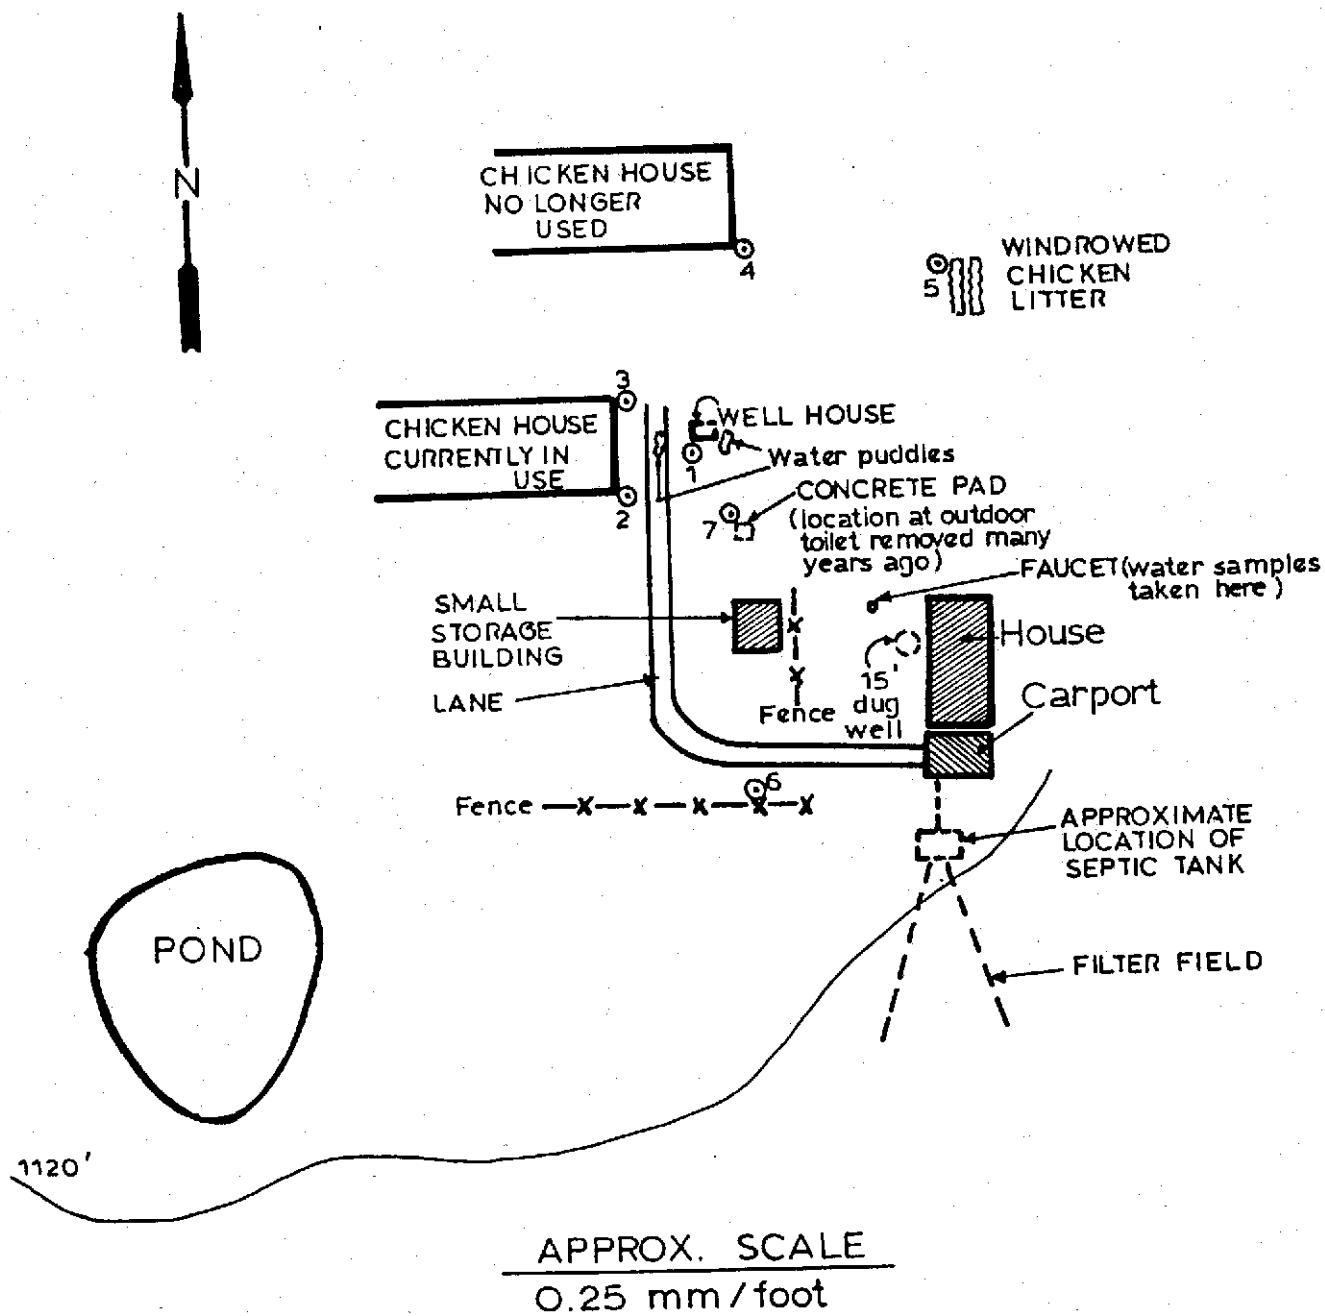 N
CHICKEN HOUSE
NO LONGER
USED
4
5
WINDROWED
CHICKEN
LITTER
3
CHICKEN HOUSE
CURRENTLY IN
USE
2
WELL HOUSE
1
Water puddles
7
CONCRETE PAD
(location at outdoor
toilet removed many
years ago)
FAUCET (water samples
taken here)
SMALL
STORAGE
BUILDING
LANE
Fence
15'
dug
well
House
Carport
6
Fence
APPROXIMATE
LOCATION OF
SEPTIC TANK
FILTER FIELD
POND
1120'
APPROX. SCALE
0.25 mm/foot